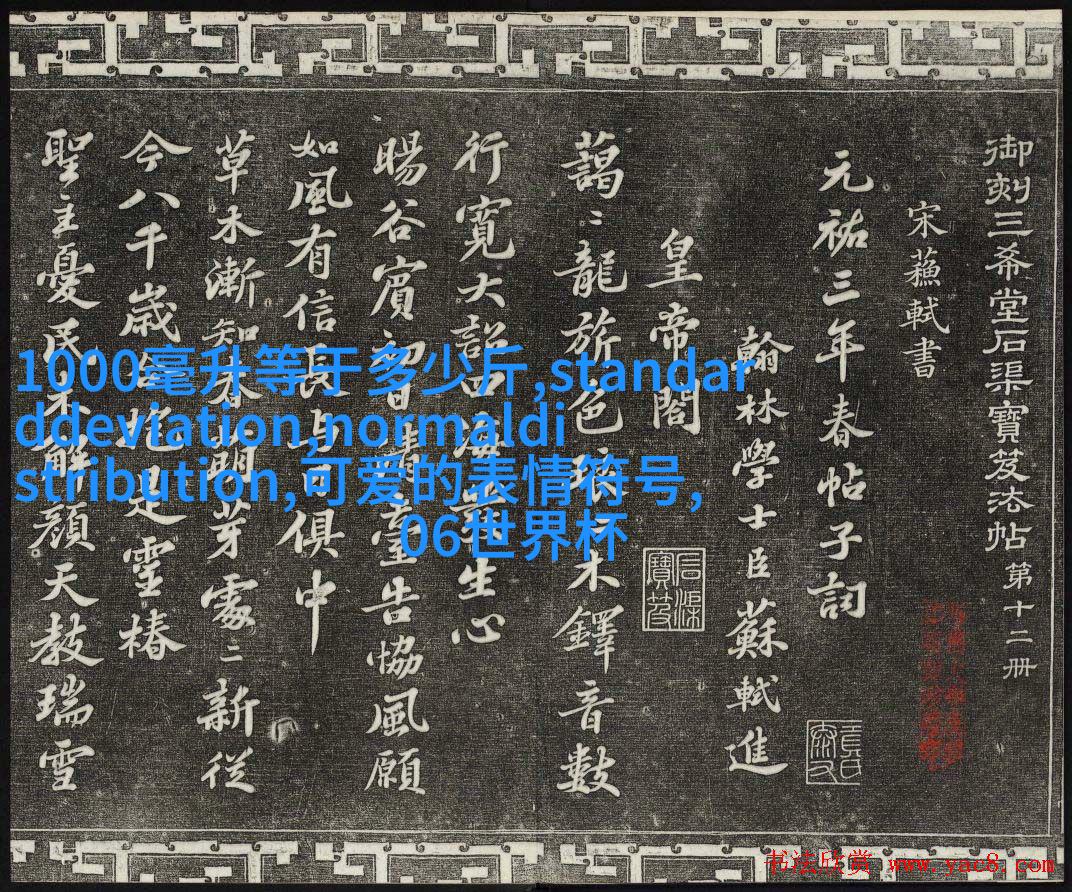 御刻三希堂石渠寶笈法帖第十二册
宋蘓軾書
元祐三年春帖子詞
翰林學士臣蘇軾進
皇帝閣
藹〻龍旂色琅〻木鐸音數
行寬大詔四海發生心
暘谷賓初日清臺告協風願
如風有信長與日俱中
草木漸知春萌芽處〻新從
今八千歲合抱是靈椿
聖主憂民未解顏天教瑞雪
石渠寶笈
1000毫升等于多少斤,standar
ddeviation,normaldi
stribution,可爱的表情符号,
06世界杯
书法欣赏 www.yac8.com